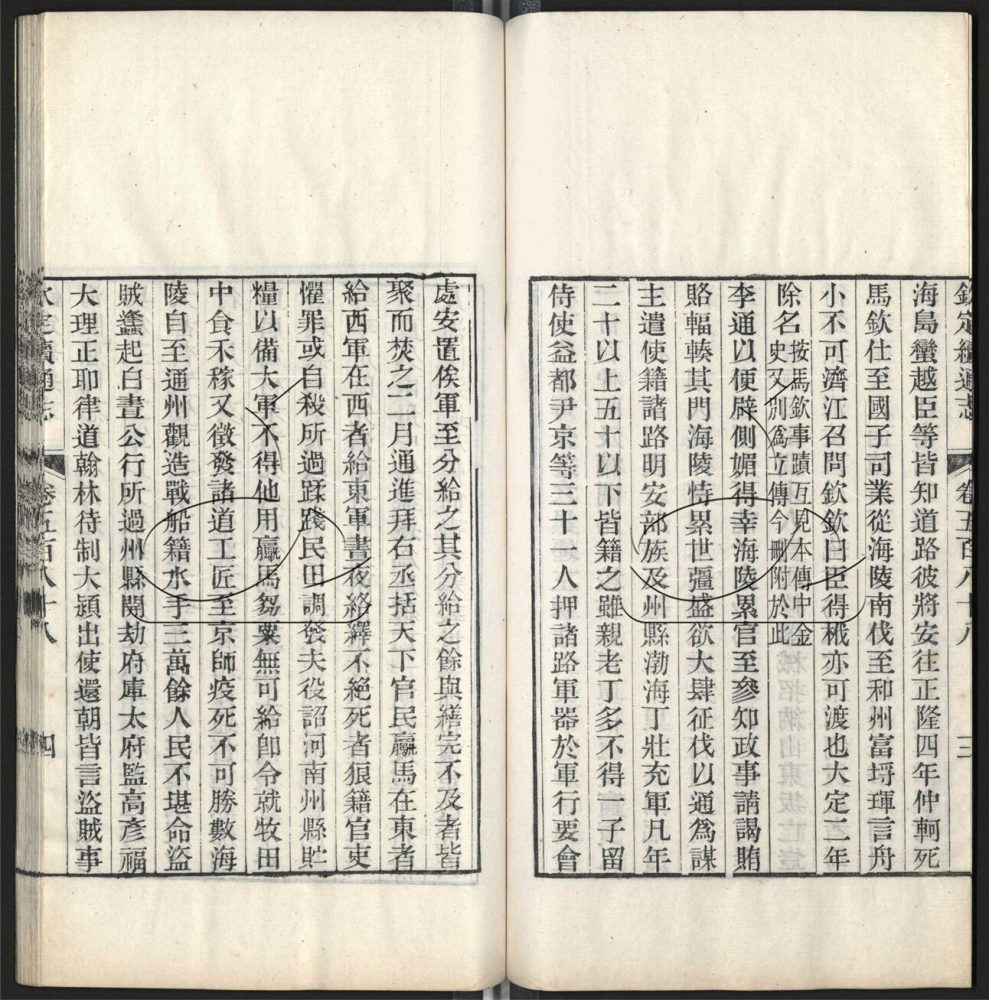 欽定續通志 卷五百八十八 三
海島蠻越臣等皆知道路彼將安往正隆四年仲軻死
馬欽仕至國子司業從海陵南伐至和州富埒琿言舟
小不可濟江召問欽欽曰臣得栰亦可渡也大定二年
除名按馬欽事蹟互見本傳中金
史又別爲立傳今刪附於此
李通以便辟側媚得幸海陵累官至參知政事請謁賄
賂輻輳其門海陵恃累世彊盛欲大肆征伐以通爲謀
主遣使籍諸路明安部族及州縣渤海丁壯充軍凡年
二十以上五十以下皆籍之雖親老丁多不得一子留
侍使益都尹京等三十一人押諸路軍器於軍行要會
處安置俟軍至分給之其分給之餘與繕完不及者皆
聚而焚之二月通進拜右丞括天下官民驘馬在東者
給西軍在西者給東軍晝夜絡繹不絕死者狼籍官吏
懼罪或自殺所過蹂踐民田調發夫役詔河南州縣貯
糧以備大軍不得他用驘馬芻粟無可給卽令就牧田
中食禾稼又徵發諸道工匠至京師疫死不可勝數海
陵自至通州觀造戰船籍水手三萬餘人民不堪命盜
賊蠭起白晝公行所過州縣開劫府庫太府監高彥福
大理正耶律道翰林待制大穎出使還朝皆言盜賊事
欽定續通志 卷五百八十八 四